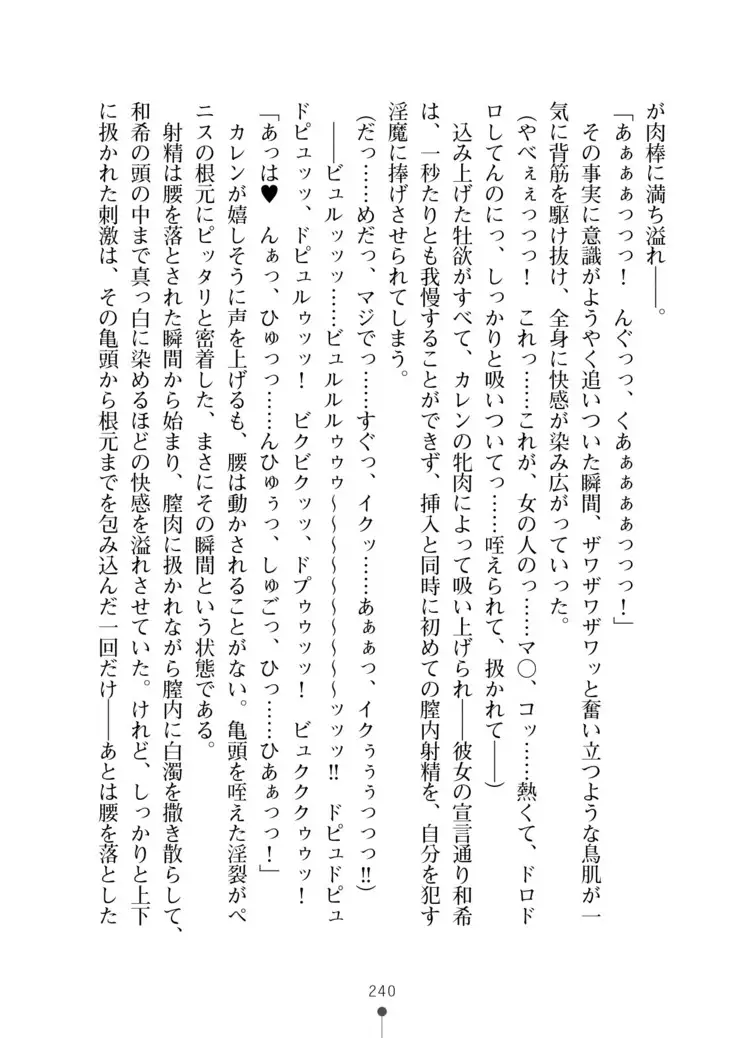 が肉棒に満ち溢れ――。
「あぁぁぁっっっ！　んぐっっ、くあぁぁぁぁっっっ！」
　その事実に意識がようやく追いついた瞬間、ザワザワザワッと奮い立つような鳥肌が一
気に背筋を駆け抜け、全身に快感が染み広がっていった。
（やべぇぇっっっ！　これっ……これが、女の人のっ……マ〇、コッ……熱くて、ドロド
ロしてんのにっ、しっかりと吸いついてっ……咥えられて、扱かれて――）
　込み上げた牡欲がすべて、カレンの牝肉によって吸い上げられ――彼女の宣言通り和希
は、一秒たりとも我慢することができず、挿入と同時に初めての膣内射精を、自分を犯す
淫魔に捧げさせられてしまう。
（だっ……めだっ、マジでっ……すぐっ、イクッ……あぁぁっ、イクぅぅぅっっっ!!）
――ビュルッッッ……ビュルルルゥゥゥ～～～～～～～～ッッッ!!　ドピュドピュ
ドピュッッ、ドピュルゥッッ！　ビクビクッッ、ドプゥゥッッ！　ビュククゥゥッ！
「あっは♥　んぁっ、ひゅっっ……んひゅぅっ、しゅごっ、ひっ……ひあぁっっ！」
　カレンが嬉しそうに声を上げるも、腰は動かされることがない。亀頭を咥えた淫裂がペ
ニスの根元にピッタリと密着した、まさにその瞬間という状態である。
　射精は腰を落とされた瞬間から始まり、膣肉に扱かれながら膣内に白濁を撒き散らして、
和希の頭の中まで真っ白に染めるほどの快感を溢れさせていた。けれど、しっかりと上下
に扱かれた刺激は、その亀頭から根元までを包み込んだ一回だけ――あとは腰を落とした
240